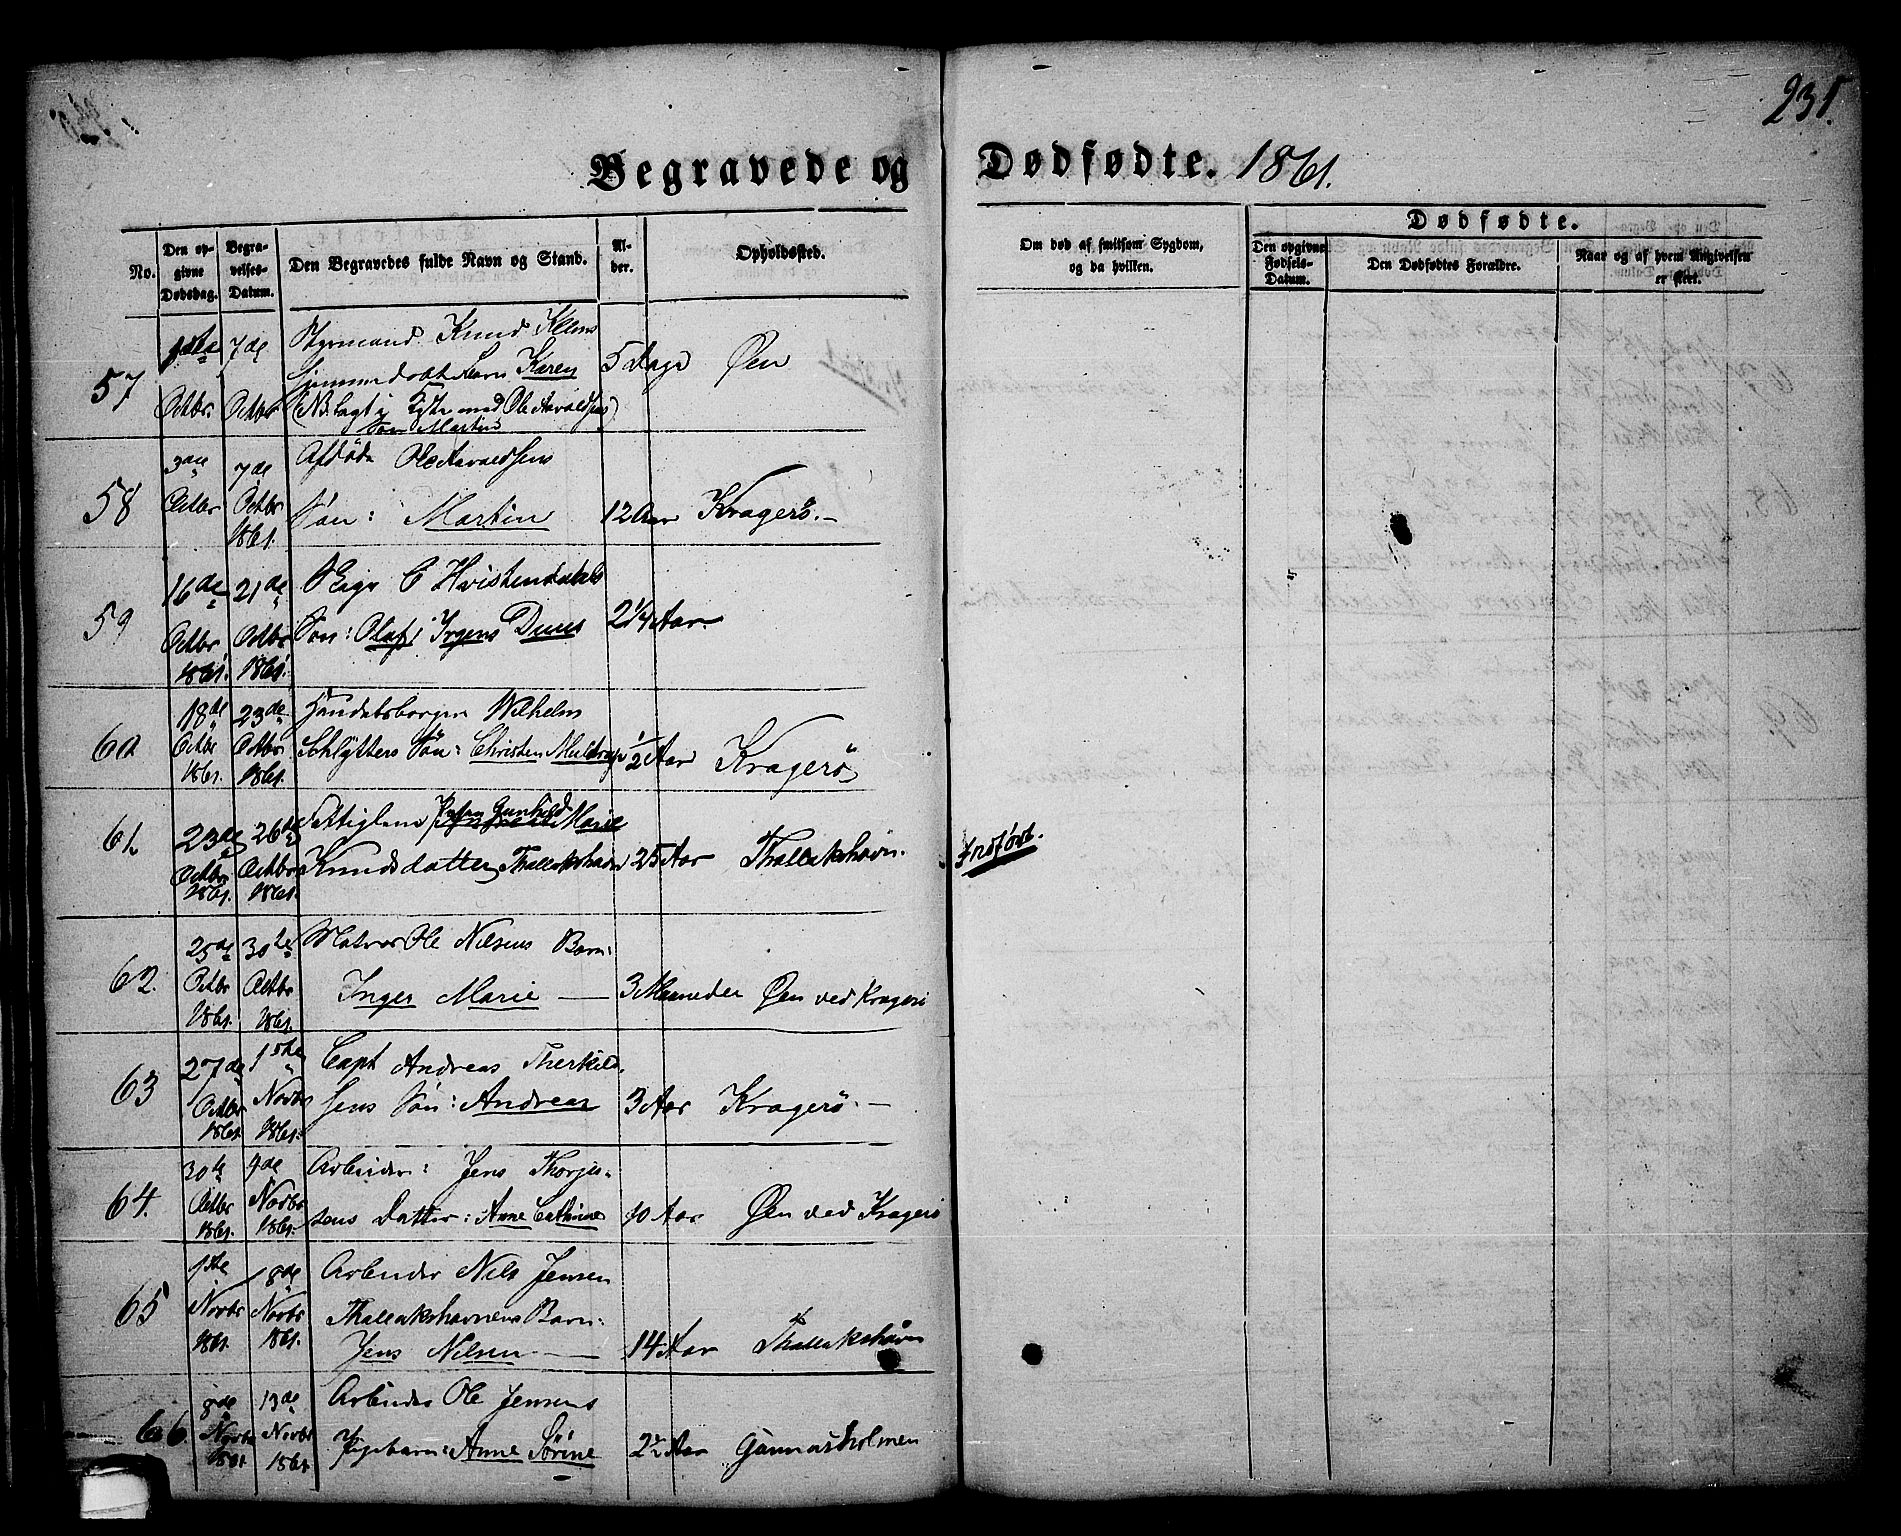 231.
Begravede og Dødfødte. 1861.
No.
Den op-
givne
Dødsdag.
Begra-
velses-
Datum.
Den Begravedes fulde Navn og Stand.
Al-
der.
Opholdssted.
Om død af smitsom Sygdom,
og da hvilken.
Dødfødte.
Den opgivne
Fødsels-
Datum.
Den Dødfødtes Forældre.
Naar og af hvem Angivelsen
er skeet.
57 1ste Octbr 7de Octbr
Styrmand Knud Klems
Barn Karen 5 Dage Øen
(NB lagt i Kiste med Ole Aavaldsens
Søn Martin)
58 3die Octbr 7de Octbr 1861.
Afdøde Ole Aavaldsens
Søn: Martin 12 Aar Kragerö.–
59 16de Octbr 1861. 21de Octbr 1861.
C Hvistendahls
Søn: Olaf Irgens 2 1/4 Aar.
60 18de Octbr 1861. 23de Octbr 1861.
Handelsborger Wilhelm
Schlytters Søn: Christen 1/2 Aar Kragerö
61. 23de Octbr 1861. 26de Octbr 1861.
Fattiglem Gunhild Marie
Knudsdatter Thallakshavn 25 Aar Thallakshavn. Indført.
62. 25de Octbr 1861. 30te Octbr 1861.
Matros Ole Nilsens Barn:
Inger Marie — 3 Maaneder Øen ved Kragerö
63 27de Octbr 1861. 1ste Novbr 1861.
Capt Andreas Therkild-
sens Søn: Andreas 3 Aar Kragerö.–
64. 30te Octbr 1861. 4de Novbr 1861.
Arbeider: Jens Thorjus-
sens Datter: Anne Cathrine 10 Aar Øen ved Kragerö
65 1ste Novbr 1861. 8de Novbr 1861.
Arbeider Nils Jensen
Thallakshavnens Barn:
Jens Nilsen — 14 Aar Thallakshavn
66. 8de Novbr 1861 13de Novbr 1861
Arbeider Ole Jensens
Pigebarn: Anne Sörine 2 1/2 Aar Gunnarsholmen